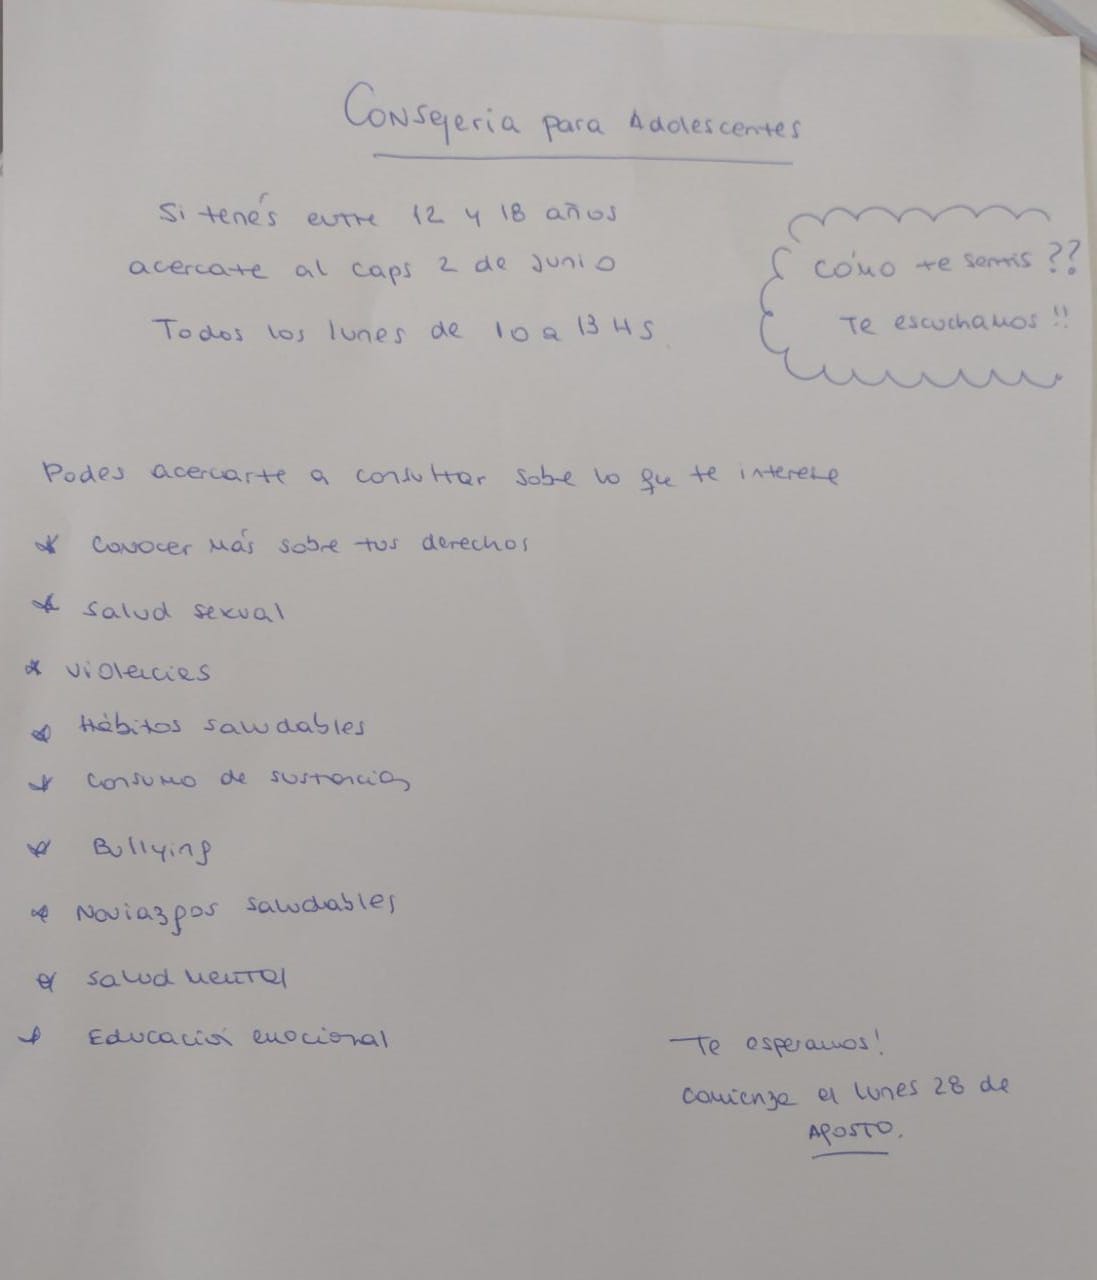 Consejeria para Adolescentes
Si tenés entre 12 y 18 años
acercate al caps 2 de Junio
Todos los lunes de 10 a 13 HS.
Cómo te sentis ??
Te escuchamos !!
Podes acercarte a consultar sobre lo que te interese
* Conocer más sobre tus derechos
* Salud sexual
* Violecies
* Hábitos saludables
* Consumo de sustancias
* Bullying
* Noviazgos saludables
* Salud mental
* Educación emocional
Te esperamos!
Comienza el lunes 28 de
AGOSTO.